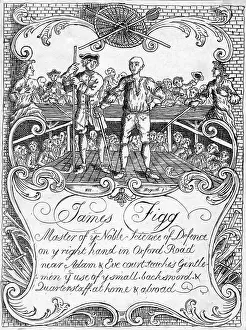 James Figg
Master of yᵉ Noble Science of Defence
on yᵉ right hand in Oxford Road
near Adam & Eve court teaches Gentle-
men yᵉ use of yᵉ small backsword &
Quarterstaff at home & abroad